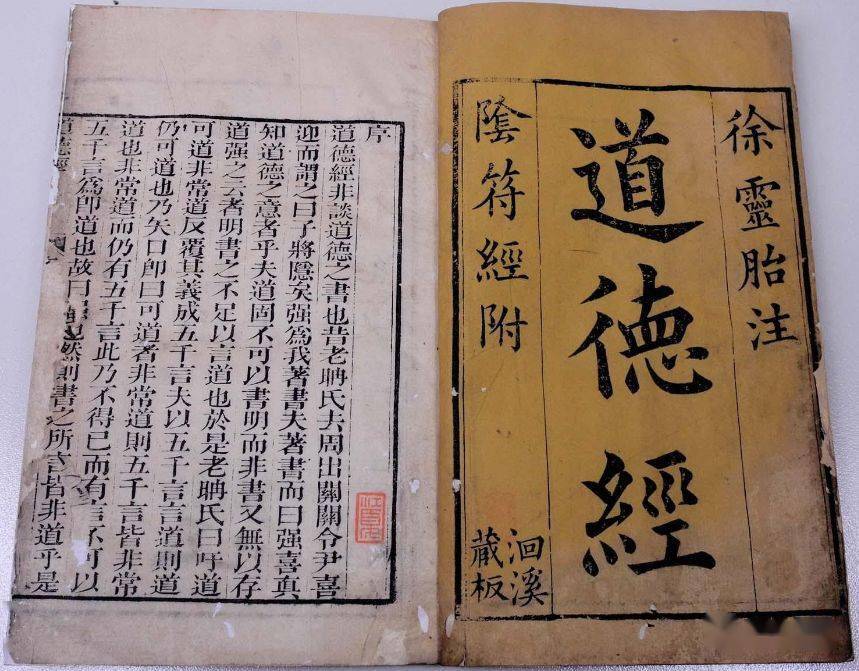 徐靈胎注
道德經
隂符經附
洄溪
藏板
序
道德經非談道德之書也昔老聃氏去周出關關令尹喜
迎而謂之曰子將隱矣强為我著書夫著書而曰强喜真
知道德之意者乎夫道固不可以書明而非書又無以存
道强之云者明書之不足以言道也於是老聃氏曰吁道
可道非常道反覆其義成五千言夫以五千言言道則道
仍可道也乃矢口卽曰可道者非常道則五千言皆非常
道也非常道而仍有五千言此乃不得已而有言不可以
五千言為卽道也故曰然則書之所言皆非道乎是
道德經